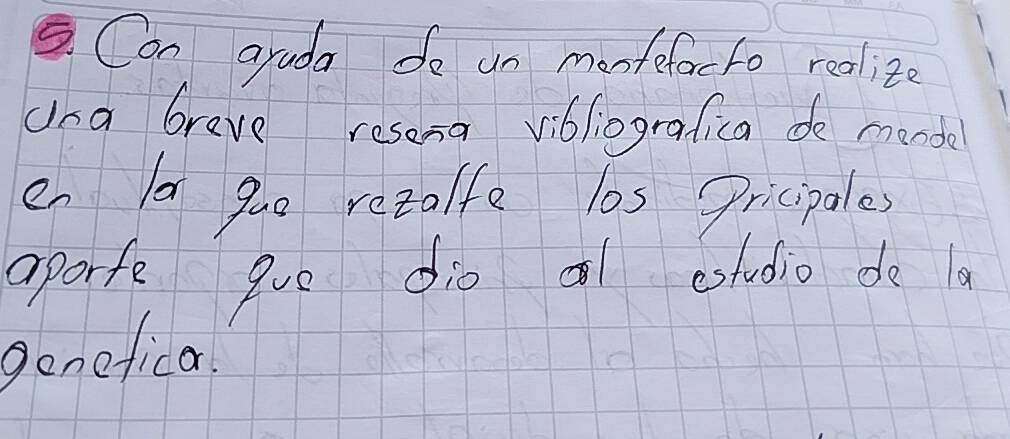 5. Con ayuda de un mentefacto realize
una breve resena vibliografica de mendel
en la que rezalte los pricipales
aporte que dio al estudio de la
genetica.